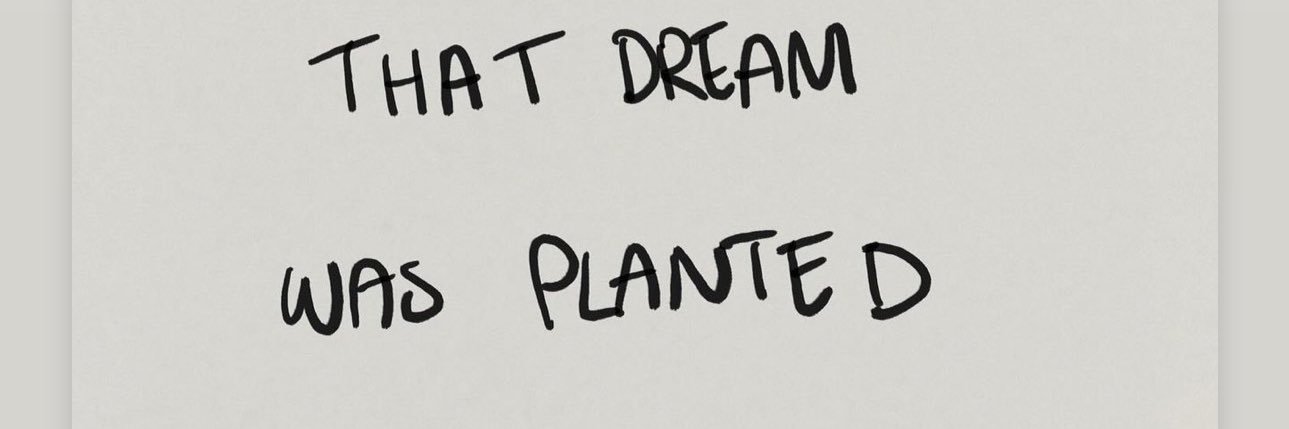 THAT DREAM
WAS PLANTED